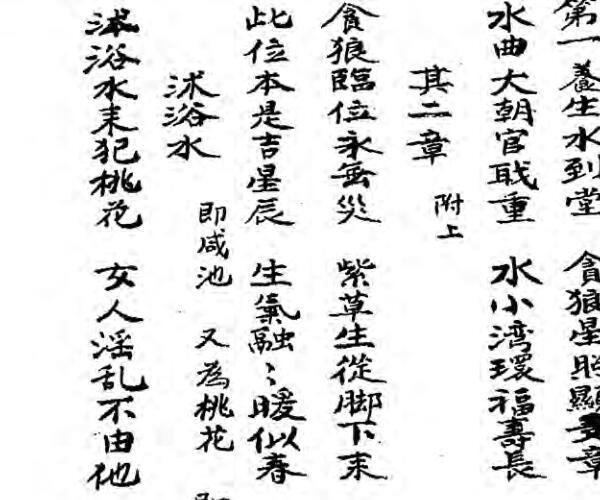 第一養生水到堂 貪狼星照顯文章
水曲大朝官職重 水小湾環福壽長
其二章 附上
貪狼臨位永無災 紫草生從脚下来
此位本是吉星辰 生氣融〻暖似春
沭浴水 即咸池 又為桃花
沭浴水来犯桃花 女人淫乱不由他